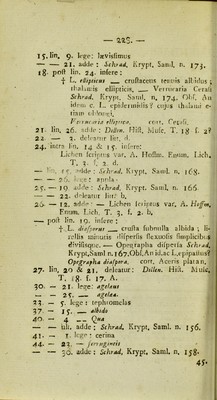 — 225. —
15. lin. 9. lege: lævissimus
— — 21. adde: Schrad. Krypt. Saml. n. 173.
18. post lin. 24. insere:
† L. ellipticus — crustaceus tenuis albidus;
thalamiis ellipticis. — Verrucaria Cerasi
Schrad. Krypt. Saml. n. 174. Obs. An
idem c. L. epidermidis? cujus thalami e-
tiam oblongi.
Verrucaria elliptica. cort. Cerasi.
21. lin. 26. adde: Dillen. Hist. Musc. T. 18. f. 2?
22. — 3. deleatur lin. d.
24. intra lin. 14 & 15. insere:
Lichen scriptus var. A. Hoffm. Enum. Lich.
T. 3. f. 2. d.
— lin. 15. adde: Schrad. Krypt. Saml. n. 168.
— — 26. lege:
25. — 19 adde: Schrad. Krypt. Saml. n. 166.
— — 22. deleatur lin: b.
26 — 12. adde: — Lichen scriptus var. A. Hoffm.
Enum. Lich. T. 3. f. 2. b.
— post lin. 19. insere:
† L. diasporus — crusta subnulla albida; li-
rellis minutis dispersis flexuosis simplicibus
divisisque. — Opegrapha dispersa Schrad.
Krypt. Saml n. 167. Obs. An id. ac L. epipastus?
Opegrapha diaspora. cort. Aceris platan.
27. lin. 20 & 21. deleatur: Dillen. Hist. Musc.
T. 18. f. 17. A.
30. — 21. lege: ageleus
— — 25. — agelæa
23. — 5. lege: tephromelas
37. — 15. — albido
40. — 4 — Qua
— — ult. adde; Schrad. Krypt. Saml. n. 156.
41. — 7. lege: cerina
44. — 22. — ferrugineis
— — 30. adde: Schrad. Krypt. Saml. n. 158.
45.